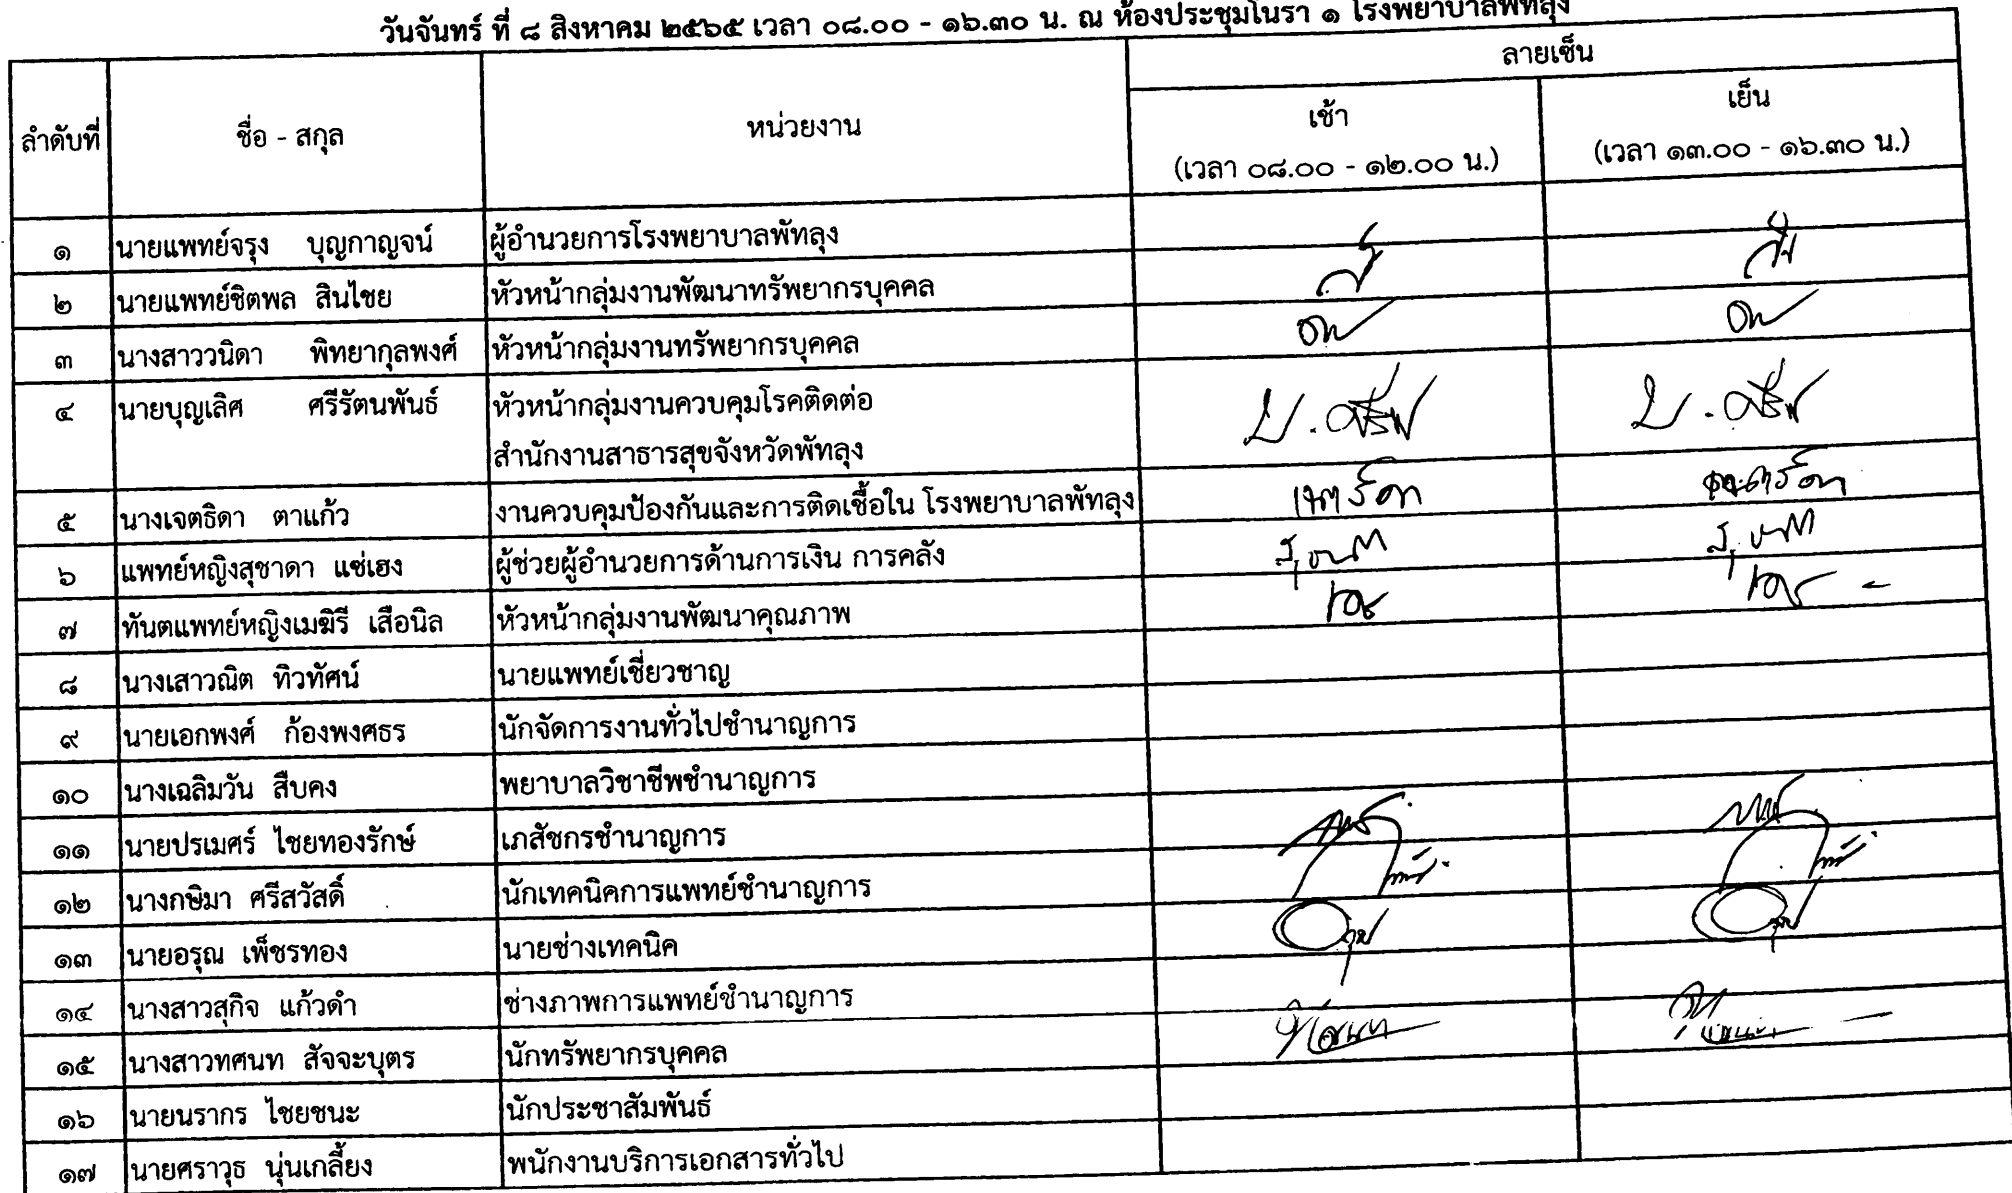 วันจันทร์ ที่ ๘ สิงหาคม ๒๕๖๕ เวลา ๐๘.๐๐ - ๑๖.๓๐ น. ณ ห้องประชุมโนรา ๑ โรงพยาบาลพัทลุง
ลำดับที่ ชื่อ - สกุล หน่วยงาน ลายเซ็น
เช้า เย็น
(เวลา ๐๘.๐๐ - ๑๒.๐๐ น.) (เวลา ๑๓.๐๐ - ๑๖.๓๐ น.)
๑ นายแพทย์จรุง บุญกาญจน์ ผู้อำนวยการโรงพยาบาลพัทลุง
๒ นายแพทย์ชิตพล สินไชย หัวหน้ากลุ่มงานพัฒนาทรัพยากรบุคคล
๓ นางสาววนิดา พิทยากุลพงศ์ หัวหน้ากลุ่มงานทรัพยากรบุคคล
๔ นายบุญเลิศ ศรีรัตนพันธ์ หัวหน้ากลุ่มงานควบคุมโรคติดต่อ
สำนักงานสาธารสุขจังหวัดพัทลุง
๕ นางเจตธิดา ตาแก้ว งานควบคุมป้องกันและการติดเชื้อใน โรงพยาบาลพัทลุง
๖ แพทย์หญิงสุชาดา แซ่เฮง ผู้ช่วยผู้อำนวยการด้านการเงิน การคลัง
๗ ทันตแพทย์หญิงเมฆิรี เสือนิล หัวหน้ากลุ่มงานพัฒนาคุณภาพ
๘ นางเสาวณิต ทิวทัศน์ นายแพทย์เชี่ยวชาญ
๙ นายเอกพงศ์ ก้องพงศธร นักจัดการงานทั่วไปชำนาญการ
๑๐ นางเฉลิมวัน สืบคง พยาบาลวิชาชีพชำนาญการ
๑๑ นายปรเมศร์ ไชยทองรักษ์ เภสัชกรชำนาญการ
๑๒ นางกษิมา ศรีสวัสดิ์ นักเทคนิคการแพทย์ชำนาญการ
๑๓ นายอรุณ เพ็ชรทอง นายช่างเทคนิค
๑๔ นางสาวสุกิจ แก้วดำ ช่างภาพการแพทย์ชำนาญการ
๑๕ นางสาวทศนท สัจจะบุตร นักทรัพยากรบุคคล
๑๖ นายนรากร ไชยชนะ นักประชาสัมพันธ์
๑๗ นายศราวุธ นุ่นเกลี้ยง พนักงานบริการเอกสารทั่วไป